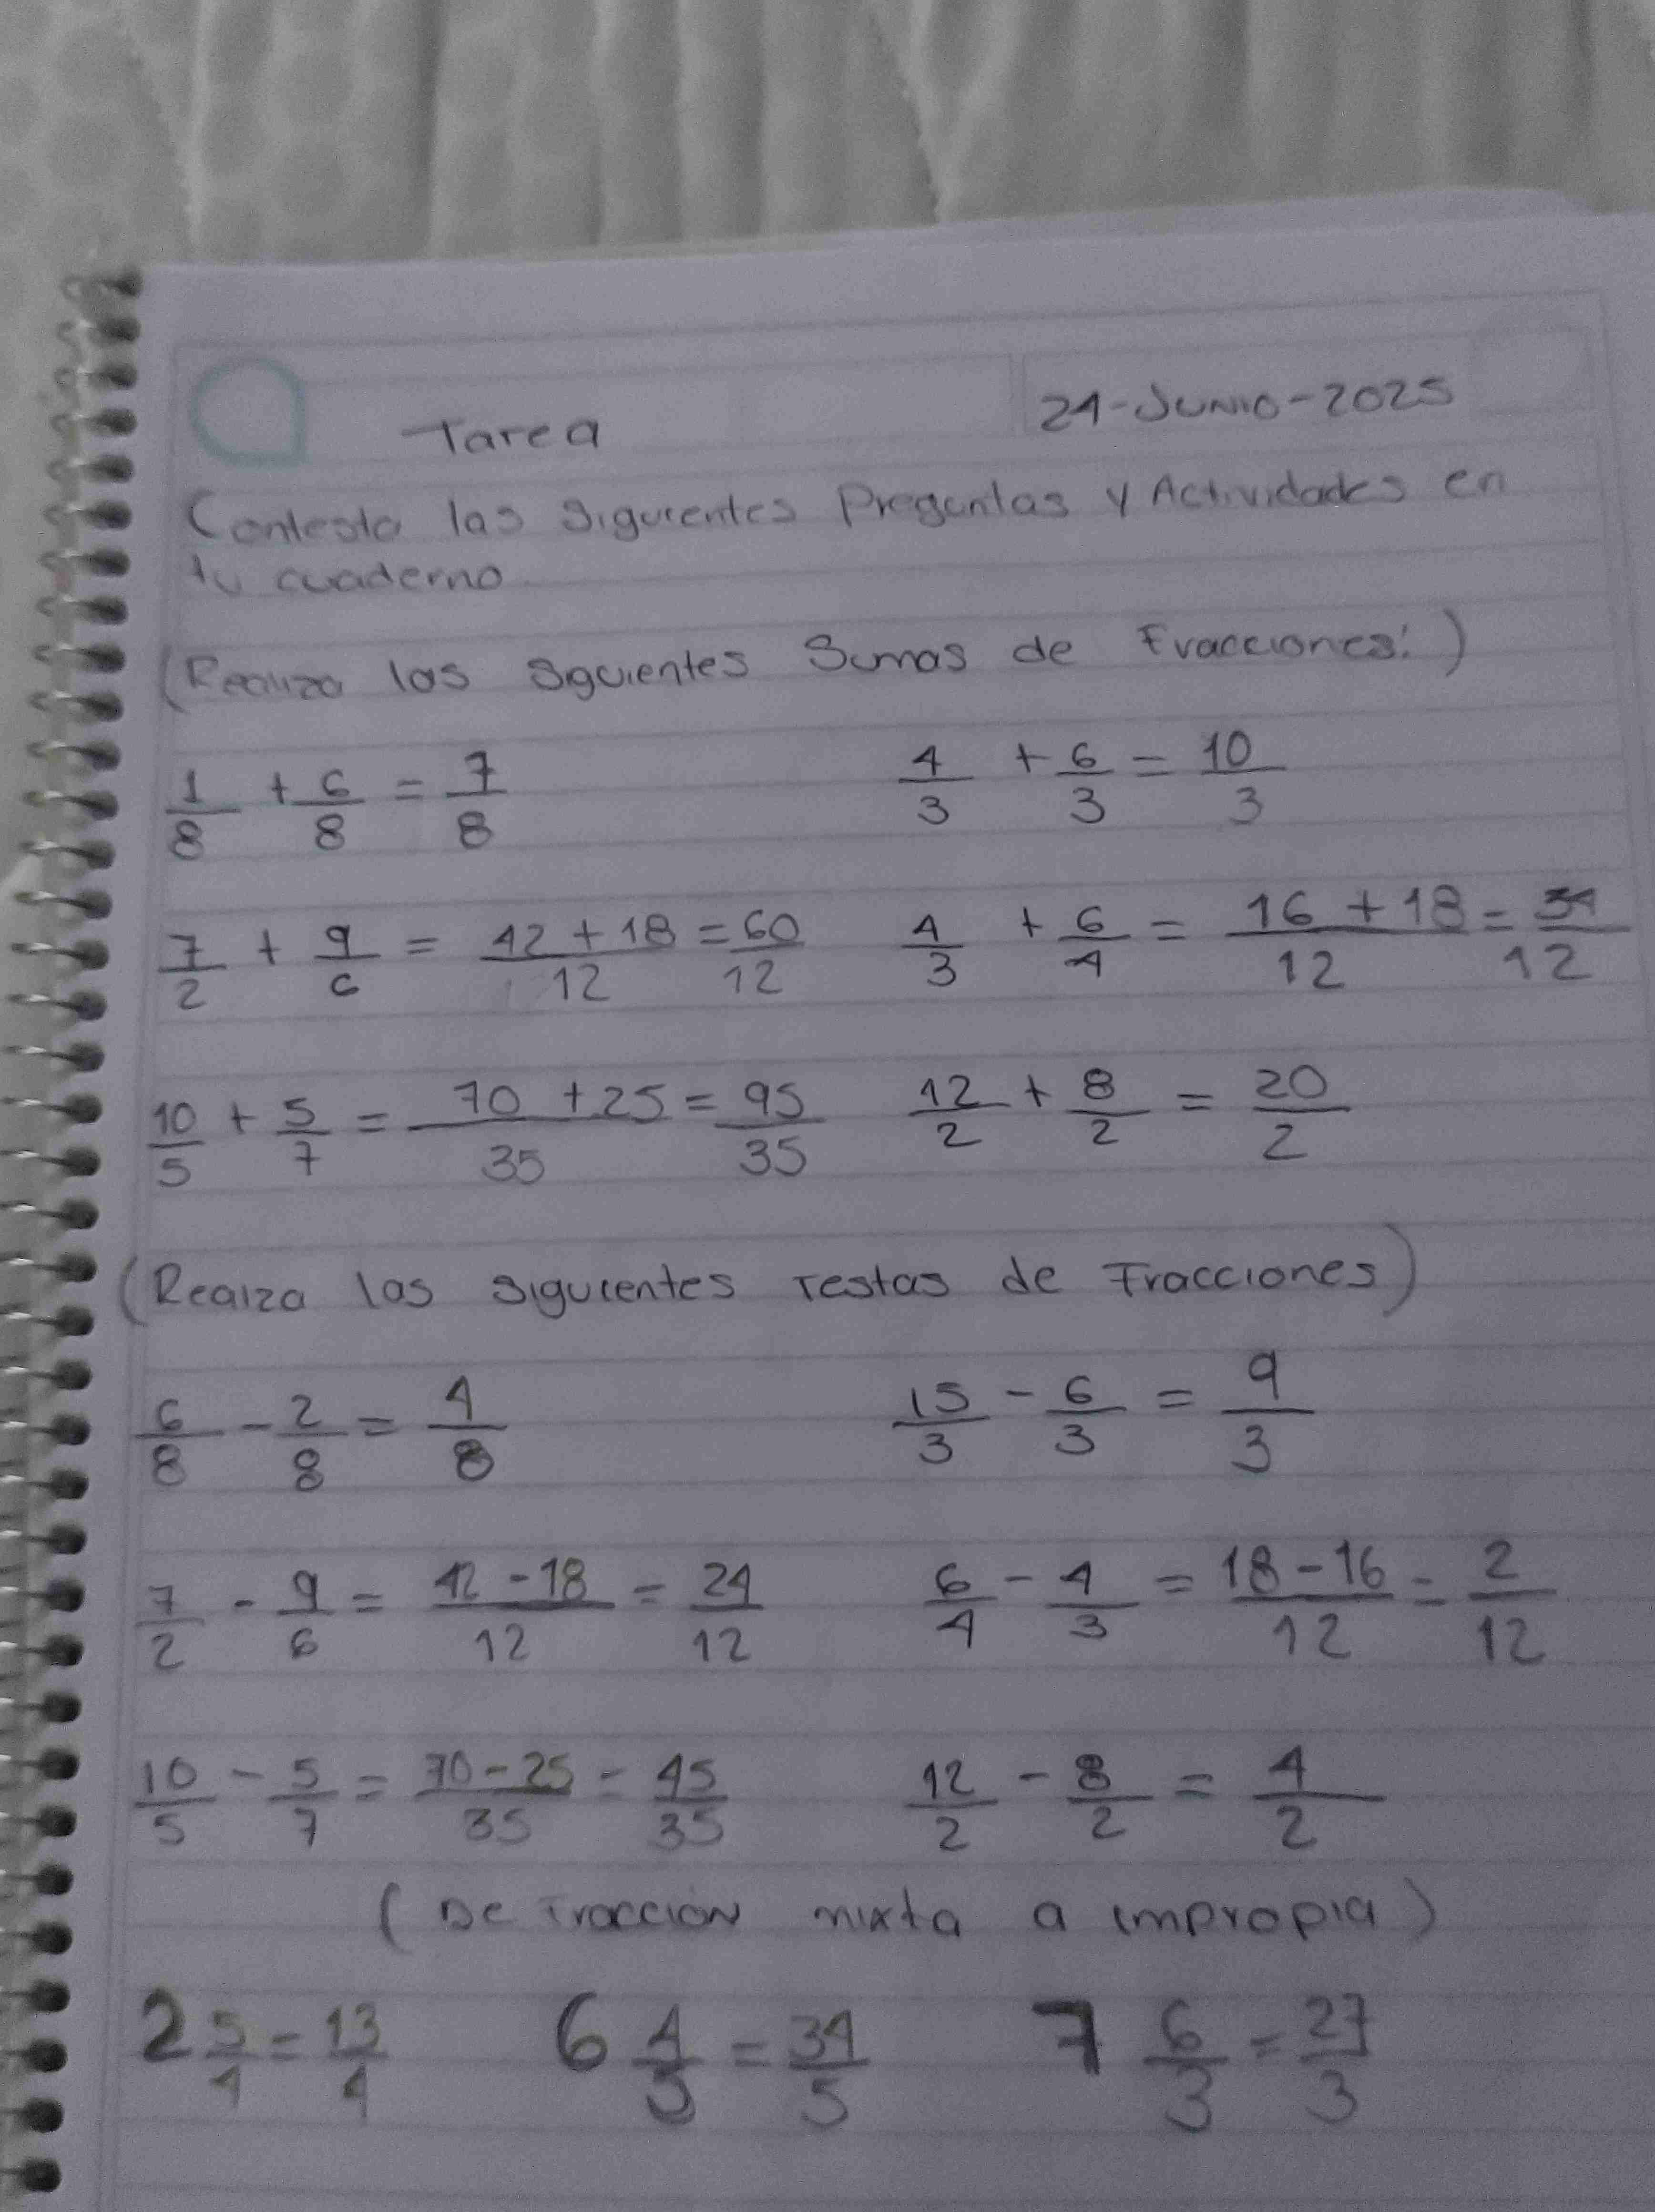 Tarea 24-Junio-2025
Contesta las siguientes Preguntas y Actividades en
tu cuaderno
(Realiza las siguientes Sumas de Fracciones:)
1/8 + 6/8 = 7/8 4/3 + 6/3 = 10/3
7/2 + 9/6 = 42+18/12 = 60/12 4/3 + 6/4 = 16+18/12 = 34/12
10/5 + 5/7 = 70+25/35 = 95/35 12/2 + 8/2 = 20/2
(Realza las siguientes restas de Fracciones)
6/8 - 2/8 = 4/8 15/3 - 6/3 = 9/3
7/2 - 9/6 = 42-18/12 = 24/12 6/4 - 4/3 = 18-16/12 = 2/12
10/5 - 5/7 = 70-25/35 = 45/35 12/2 - 8/2 = 4/2
(De Fracción mixta a impropia)
2 5/4 = 13/4 6 4/5 = 34/5 7 6/3 = 27/3